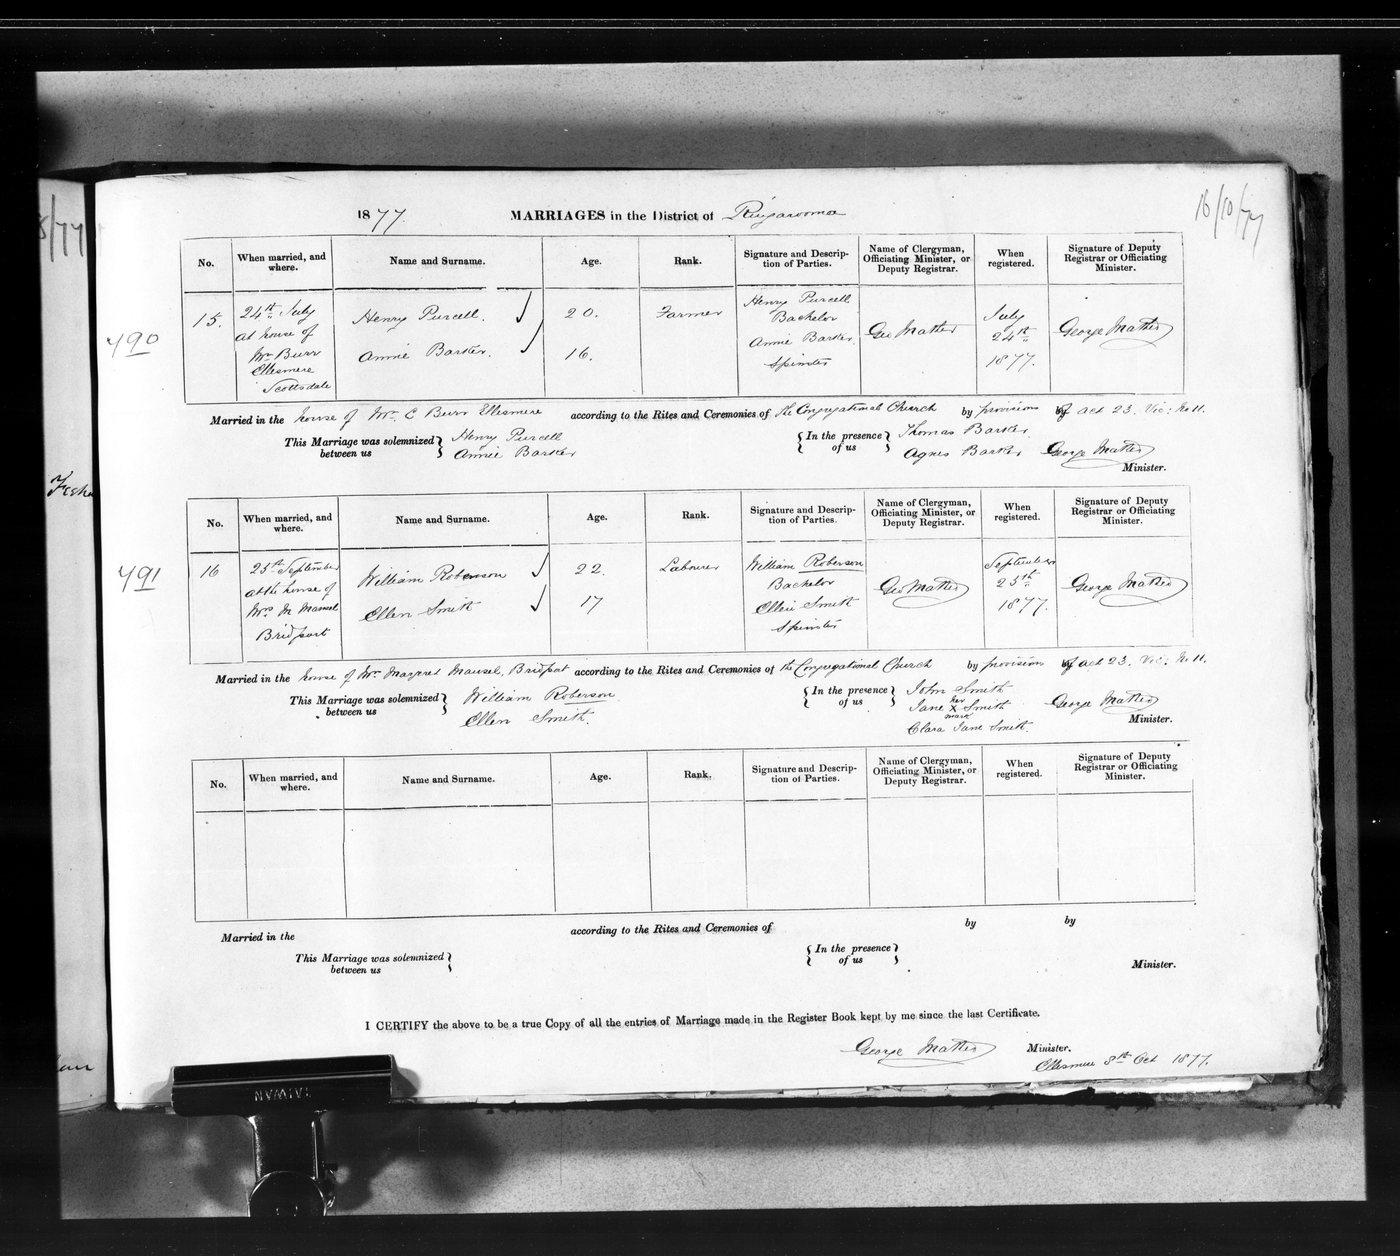 1877. MARRIAGES in the District of Ringarooma
16/10/77
No. When married, and where. Name and Surname. Age. Rank. Signature and Description of Parties. Name of Clergyman, Officiating Minister, or Deputy Registrar. When registered. Signature of Deputy Registrar or Officiating Minister.
490
15.
24th July
at house of
Mr Burr
Ellesmere
Scottsdale
Henry Purcell.
Annie Barker.
20.
16.
Farmer
Henry Purcell
Bachelor
Annie Barker.
Spinster
Geo Mather
July
24th
1877.
George Mather
Married in the house of Mr. E Burr Ellesmere according to the Rites and Ceremonies of the Congregational Church by provisions of act 23. Vic: No 11.
This Marriage was solemnized between us
Henry Purcell
Annie Barker
In the presence of us
Thomas Barker.
Agnes Barker
George Mather
Minister.
No. When married, and where. Name and Surname. Age. Rank. Signature and Description of Parties. Name of Clergyman, Officiating Minister, or Deputy Registrar. When registered. Signature of Deputy Registrar or Officiating Minister.
491
16
25th September
at the house of
Mrs M Mansel
Bridport
William Roberson
Ellen Smith
22.
17
Labourer
William Roberson
Bachelor
Ellen Smith
Spinster
Geo Mather
September
25th
1877.
George Mather
Married in the house of Mrs Margret Mansel, Bridport according to the Rites and Ceremonies of the Congregational Church by provisions of act 23. Vic: No 11.
This Marriage was solemnized between us
William Roberson
Ellen Smith.
In the presence of us
John Smith
Jane her X mark Smith
Clara Jane Smith.
George Mather
Minister.
No. When married, and where. Name and Surname. Age. Rank. Signature and Description of Parties. Name of Clergyman, Officiating Minister, or Deputy Registrar. When registered. Signature of Deputy Registrar or Officiating Minister.
Married in the according to the Rites and Ceremonies of by by
This Marriage was solemnized between us
In the presence of us
Minister.
I CERTIFY the above to be a true Copy of all the entries of Marriage made in the Register Book kept by me since the last Certificate.
George Mather Minister.
Ellesmere 8th Oct 1877.